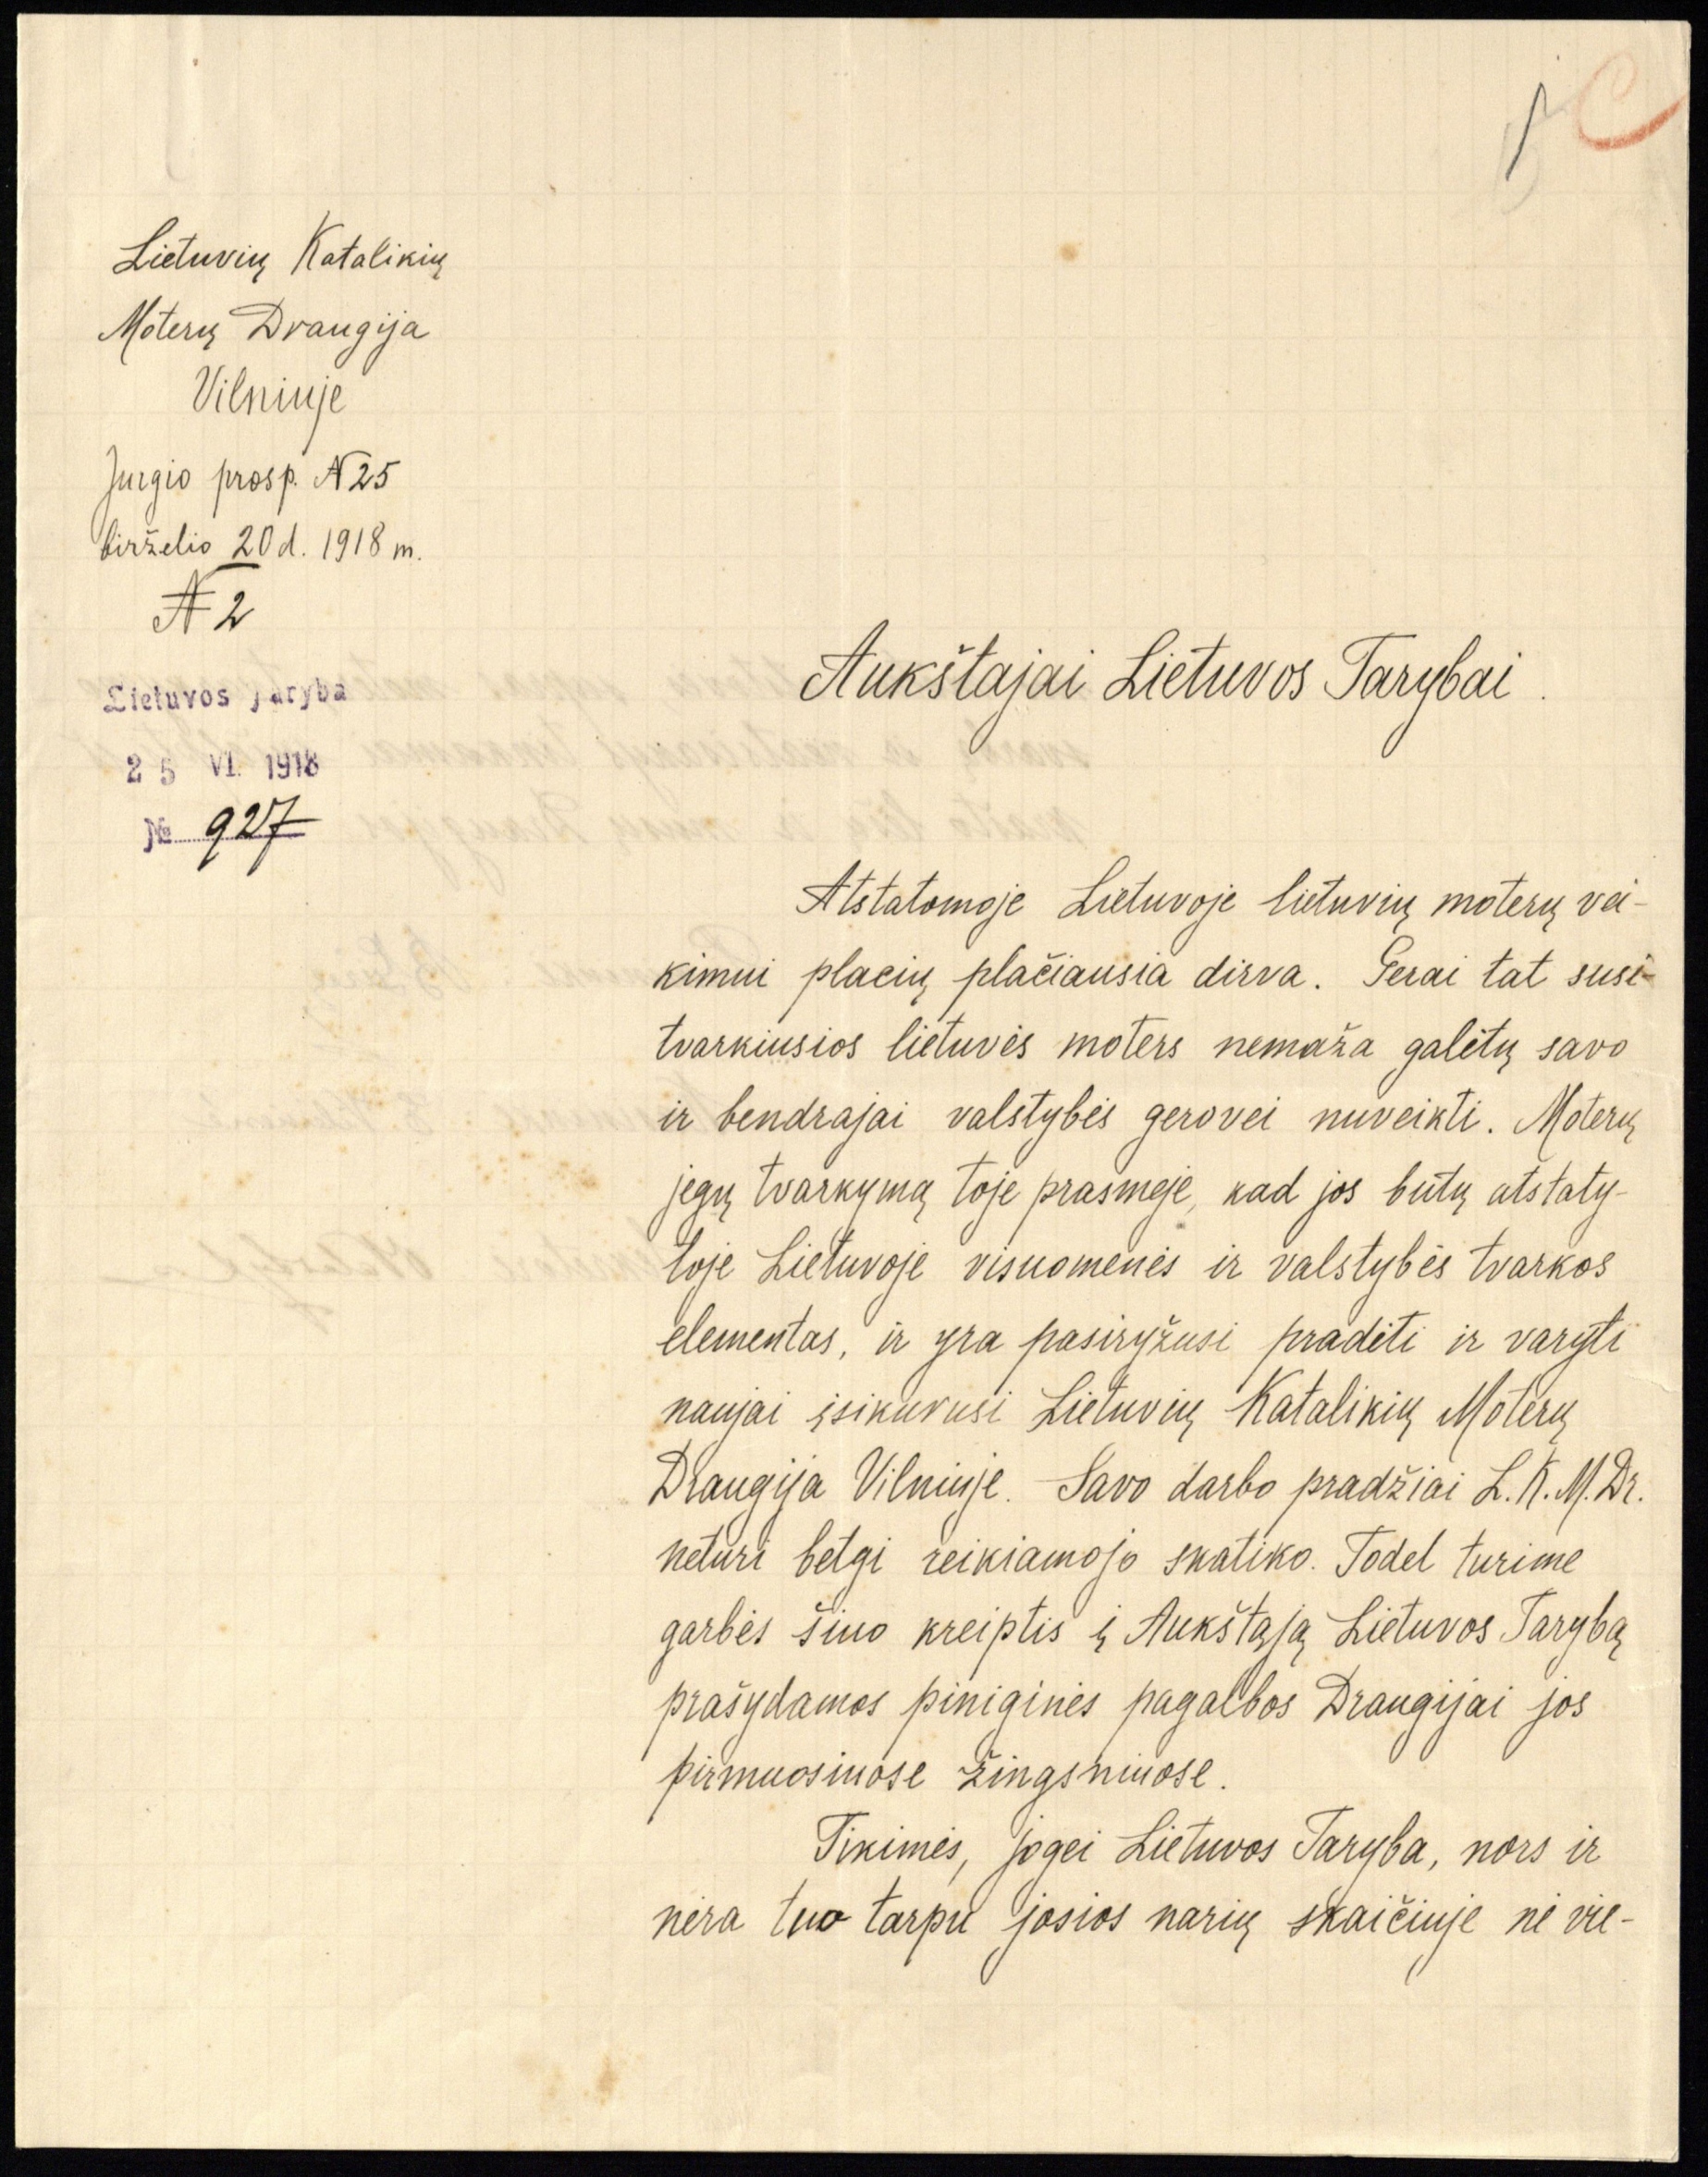 Lietuvių Katalikių
Moterų Draugija
Vilniuje
Jurgio prosp. № 25
birželio 20 d. 1918 m.
№ 2
Lietuvos Taryba
25 VI. 1918
№ 927
Aukštajai Lietuvos Tarybai.
Atstatomoje Lietuvoje lietuvių moterų vei-
kimui placių plačiausia dirva. Gerai tat susi-
tvarkiusios lietuvės moters nemaža galėtų savo
ir bendrajai valstybės gerovei nuveikti. Moterų
jegų tvarkymą toje prasmeje, kad jos butų atstaty-
toje Lietuvoje visuomenės ir valstybės tvarkos
elementas, ir yra pasiryžusi pradėti ir varyti
naujai įsikurusi Lietuvių Katalikių Moterų
Draugija Vilniuje. Savo darbo pradžiai L. K. M. Dr.
neturi betgi reikiamojo skatiko. Todel turime
garbės šiuo kreiptis į Aukštąją Lietuvos Tarybą
prašydamos piniginės pagalbos Draugijai jos
pirmuosiuose žingsniuose.
Tikimės, jogei Lietuvos Taryba, nors ir
nėra tuo tarpu josios narių skaičiuje nė vie-